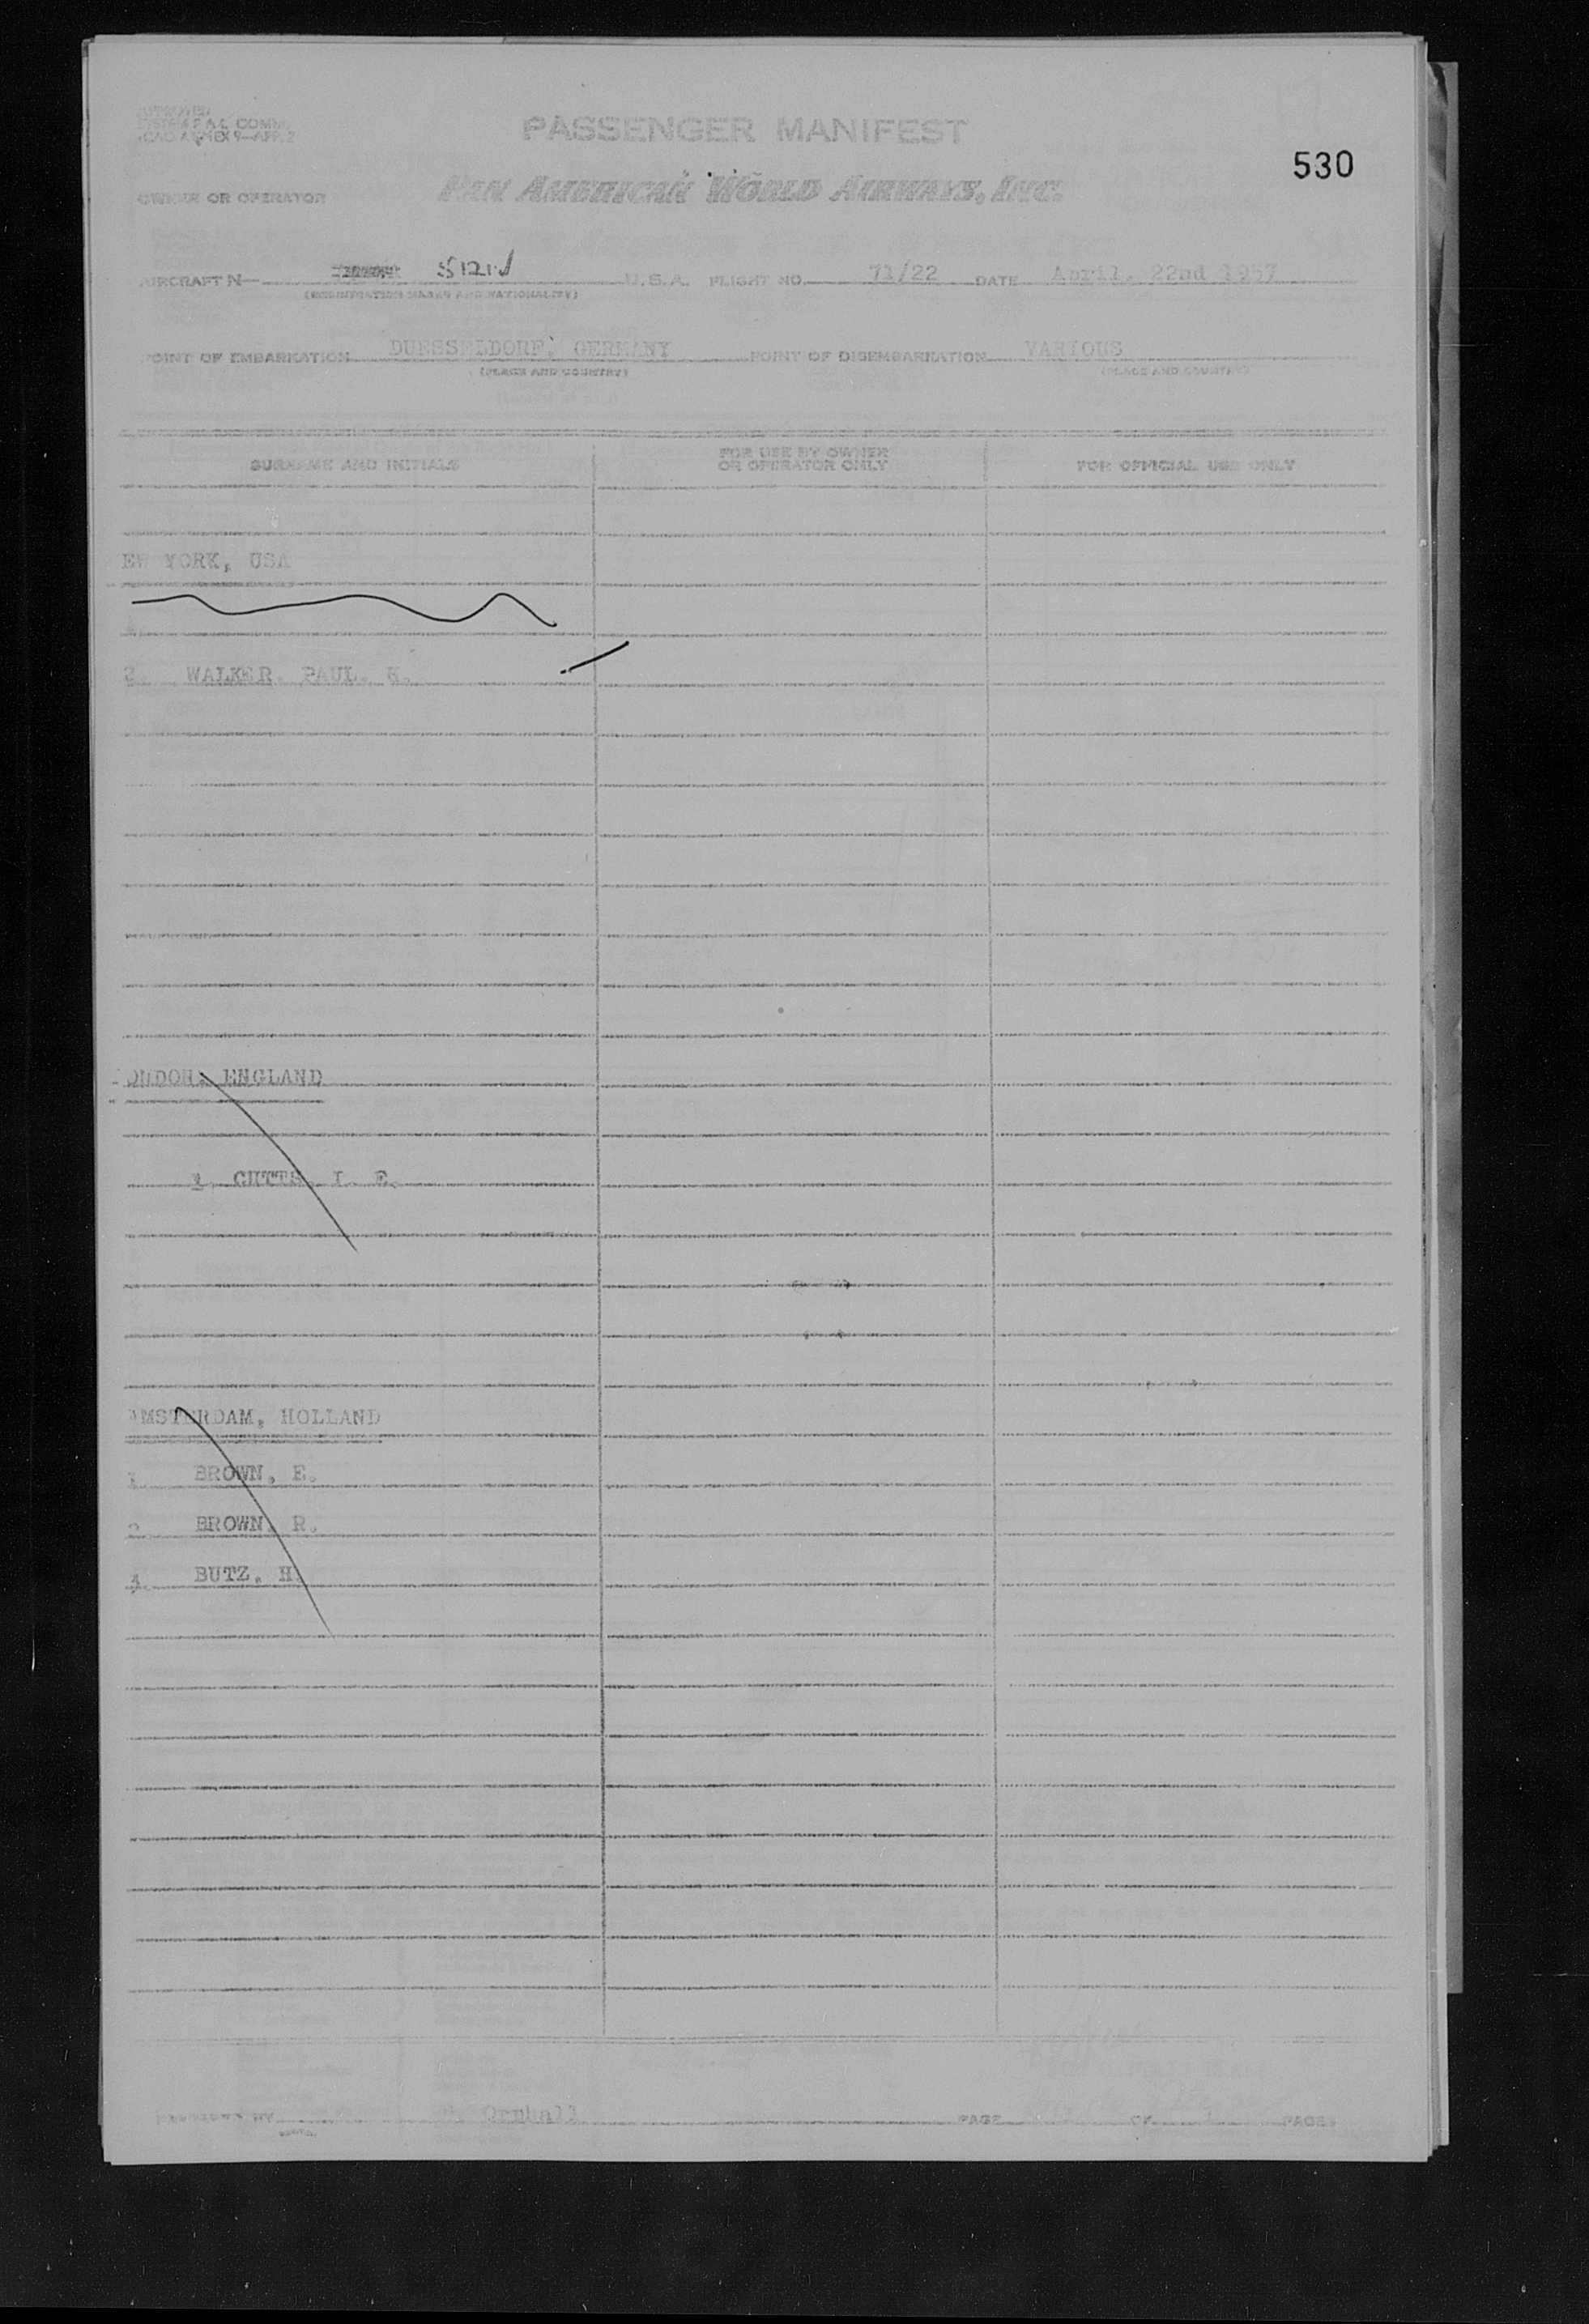 PASSENGER MANIFEST
530
OWNER OR OPERATOR PAN AMERICAN WORLD AIRWAYS, INC.
AIRCRAFT N— U.S.A. FLIGHT NO. 71/22 DATE April, 22nd 1957
(REGISTRATION MARKS AND NATIONALITY)
POINT OF EMBARKATION DUESSELDORF, GERMANY POINT OF DISEMBARKATION VARIOUS
(PLACE AND COUNTRY) (PLACE AND COUNTRY)
SURNAME AND INITIALS FOR USE BY OWNER OR OPERATOR ONLY FOR OFFICIAL USE ONLY
EW YORK, USA
2. WALKER. PAUL. H.
ONDON, ENGLAND
1. CUTTS, I. E.
AMSTERDAM, HOLLAND
1. BROWN, E.
2. BROWN, R.
3. BUTZ, H.
PAGE OF PAGES